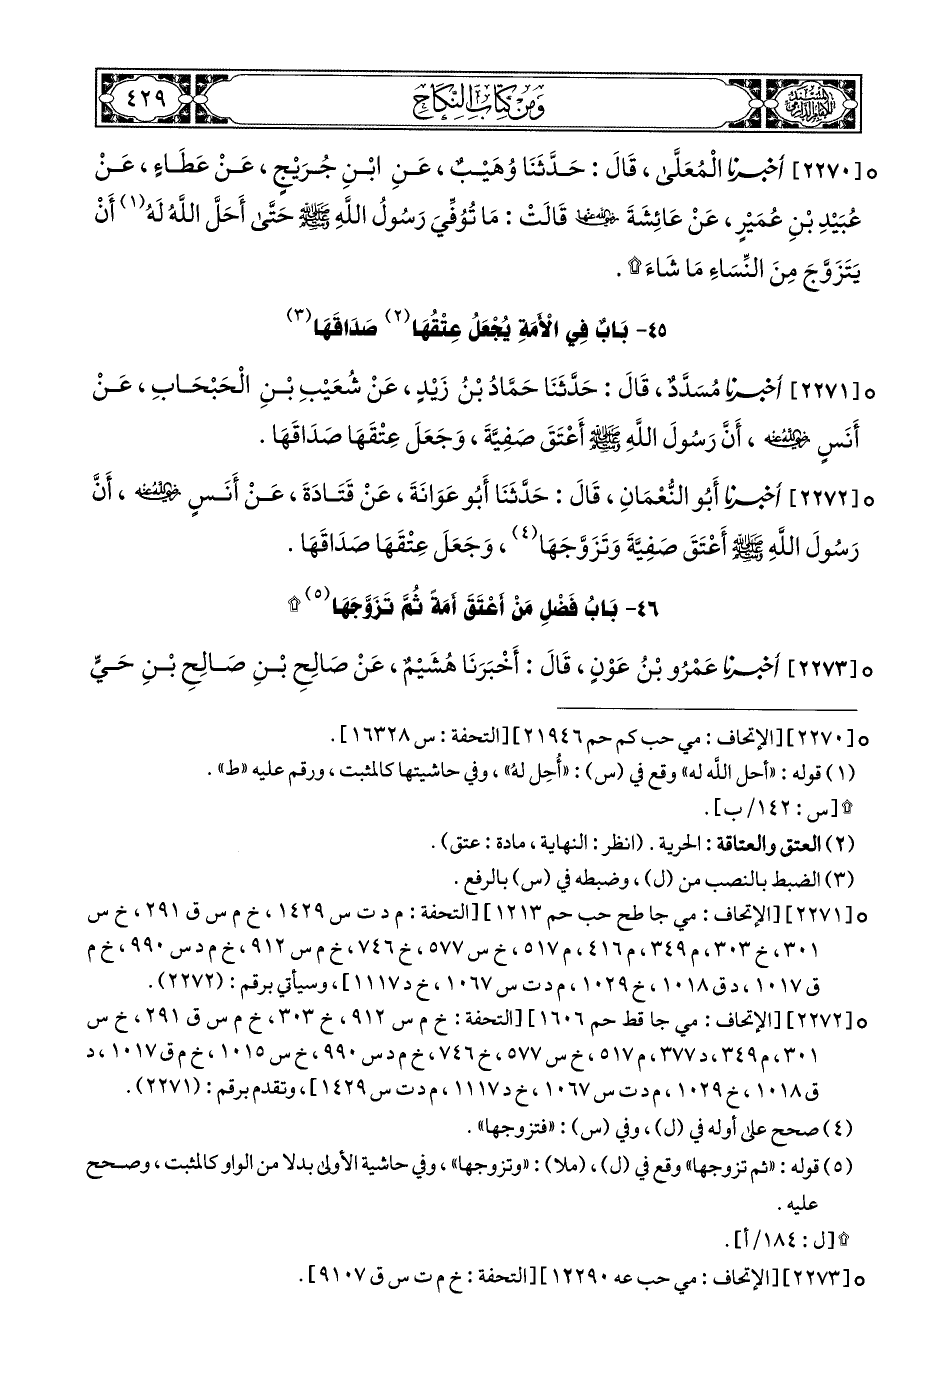 وَمِنْ كِتَابِ النِّكَاحِ
٤٢٩
٥ [٢٢٧٠] أَخْبَرَنَا الْمُعَلَّى، قَالَ: حَدَّثَنَا وُهَيْبٌ، عَنِ ابْنِ جُرَيْجٍ، عَنْ عَطَاءٍ، عَنْ
عُبَيْدِ بْنِ عُمَيْرٍ، عَنْ عَائِشَةَ رَضِيَ اللَّهُ عَنْهَا قَالَتْ: مَا تُوُفِّيَ رَسُولُ اللَّهِ ﷺ حَتَّى أَحَلَّ اللَّهُ لَهُ(١) أَنْ
يَتَزَوَّجَ مِنَ النِّسَاءِ مَا شَاءَ ۩.
٤٥- بَابٌ فِي الْأَمَةِ يُجْعَلُ عِتْقُهَا(٢) صَدَاقَهَا(٣)
٥ [٢٢٧١] أَخْبَرَنَا مُسَدَّدٌ، قَالَ: حَدَّثَنَا حَمَّادُ بْنُ زَيْدٍ، عَنْ شُعَيْبِ بْنِ الْحَبْحَابِ، عَنْ
أَنَسٍ رَضِيَ اللَّهُ عَنْهُ، أَنَّ رَسُولَ اللَّهِ ﷺ أَعْتَقَ صَفِيَّةَ، وَجَعَلَ عِتْقَهَا صَدَاقَهَا.
٥ [٢٢٧٢] أَخْبَرَنَا أَبُو النُّعْمَانِ، قَالَ: حَدَّثَنَا أَبُو عَوَانَةَ، عَنْ قَتَادَةَ، عَنْ أَنَسٍ رَضِيَ اللَّهُ عَنْهُ، أَنَّ
رَسُولَ اللَّهِ ﷺ أَعْتَقَ صَفِيَّةَ وَتَزَوَّجَهَا(٤)، وَجَعَلَ عِتْقَهَا صَدَاقَهَا.
٤٦- بَابُ فَضْلِ مَنْ أَعْتَقَ أَمَةً ثُمَّ تَزَوَّجَهَا(٥) ۩
٥ [٢٢٧٣] أَخْبَرَنَا عَمْرُو بْنُ عَوْنٍ، قَالَ: أَخْبَرَنَا هُشَيْمٌ، عَنْ صَالِحِ بْنِ صَالِحِ بْنِ حَيٍّ
٥ [٢٢٧٠] [الإتحاف: مي حب كم حم ٢١٩٤٦] [التحفة: س ١٦٣٢٨].
(١) قوله: «أحل اللَّه له» وقع في (س): «أُحِل لهُ»، وفي حاشيتها كالمثبت، ورقم عليه «ط».
۩ [س: ١٤٢/ ب].
(٢) العتق والعتاقة: الحرية. (انظر: النهاية، مادة: عتق).
(٣) الضبط بالنصب من (ل)، وضبطه في (س) بالرفع.
٥ [٢٢٧١] [الإتحاف: مي جا طح حب حم ١٢١٣] [التحفة: م د ت س ١٤٢٩، خ م س ق ٢٩١، خ س
٣٠١، خ ٣٠٣، م ٣٤٩، م ٤١٦، م ٥١٧، خ س ٥٧٧، خ ٧٤٦، خ م س ٩١٢، خ م د س ٩٩٠، خ م
ق ١٠١٧، د ق ١٠١٨، خ ١٠٢٩، م د ت س ١٠٦٧، خ د ١١١٧]، وسيأتي برقم: (٢٢٧٢).
٥ [٢٢٧٢] [الإتحاف: مي جا قط حم ١٦٠٦] [التحفة: خ م س ٩١٢، خ ٣٠٣، خ م س ق ٢٩١، خ س
٣٠١، م ٣٤٩، د ٣٧٧، م ٥١٧، خ س ٥٧٧، خ ٧٤٦، خ م د س ٩٩٠، خ س ١٠١٥، خ م ق ١٠١٧، د
ق ١٠١٨، خ ١٠٢٩، م د ت س ١٠٦٧، خ د ١١١٧، م د ت س ١٤٢٩]، وتقدم برقم: (٢٢٧١).
(٤) صحح على أوله في (ل)، وفي (س): «فتزوجها».
(٥) قوله: «ثم تزوجها» وقع في (ل)، (ملا): «وتزوجها»، وفي حاشية الأولى بدلا من الواو كالمثبت، وصحح
عليه.
۩ [ل: ١٨٤/ أ].
٥ [٢٢٧٣] [الإتحاف: مي حب عه ١٢٢٩٠] [التحفة: خ م ت س ق ٩١٠٧].